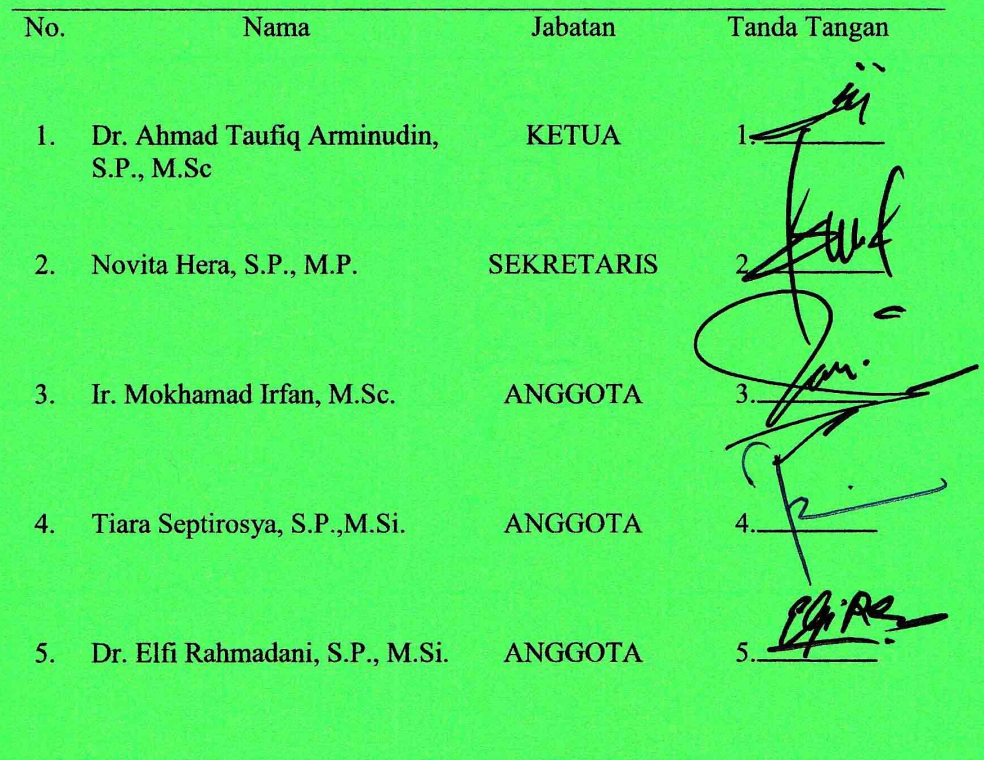 No. Nama Jabatan Tanda Tangan
1. Dr. Ahmad Taufiq Arminudin, KETUA 1.
S.P., M.Sc
2. Novita Hera, S.P., M.P. SEKRETARIS 2.
3. Ir. Mokhamad Irfan, M.Sc. ANGGOTA 3.
4. Tiara Septirosya, S.P.,M.Si. ANGGOTA 4.
5. Dr. Elfi Rahmadani, S.P., M.Si. ANGGOTA 5.